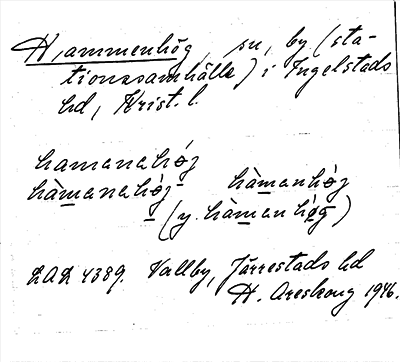 Hammenhög, sn, by (sta-
tionssamhälle) i Ingelstads
hd, Krist. l.
hamanahøg
hàmanahø̀g hàmanhø̀g
(y. hàmanhø̀g)
LAL 4389. Vallby, Järrestads hd
H. Areskoug 1946.